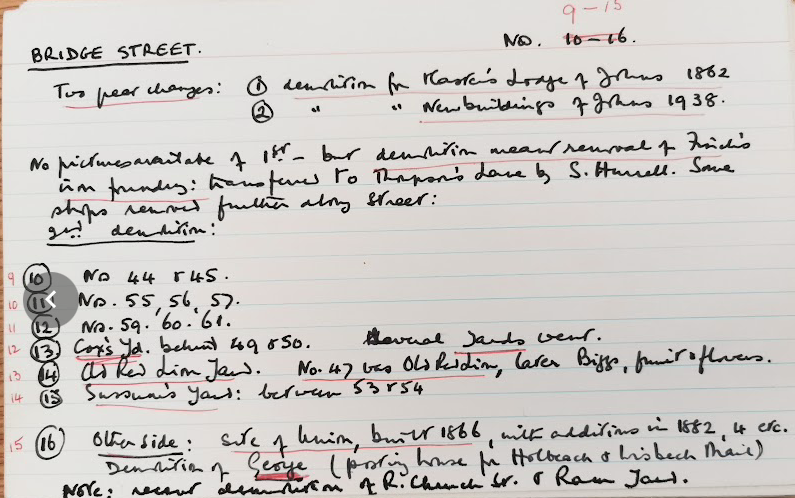 9-15
BRIDGE STREET. No. 10-16.
Two great changes: ① demolition for Master's Lodge of Johns 1862
② " " New buildings of Johns 1938.
No pictures available of 1st - but demolition meant removal of Finch's
iron foundry: transferred to Thompson's Lane by S. Hurrell. Some
shops removed further along street:
2nd demolition:
9 ⑩ No 44 & 45.
10 ⑪ No. 55, 56, 57.
11 ⑫ No. 59. 60. 61.
12 ⑬ Cox's Yd. behind 49 & 50. Several Yards went.
13 ⑭ Old Red Lion Yard. No. 47 was Old Red Lion, later Biggs, fruit & flowers.
14 ⑮ Sussum's Yard: between 53 & 54
15 ⑯ Other side: site of Union, built 1866, with additions in 1882, 4 etc.
Demolition of George (posting house for Holbeach & Wisbech Mail)
Note: recent demolition of R. Church St. & Ram Yard.